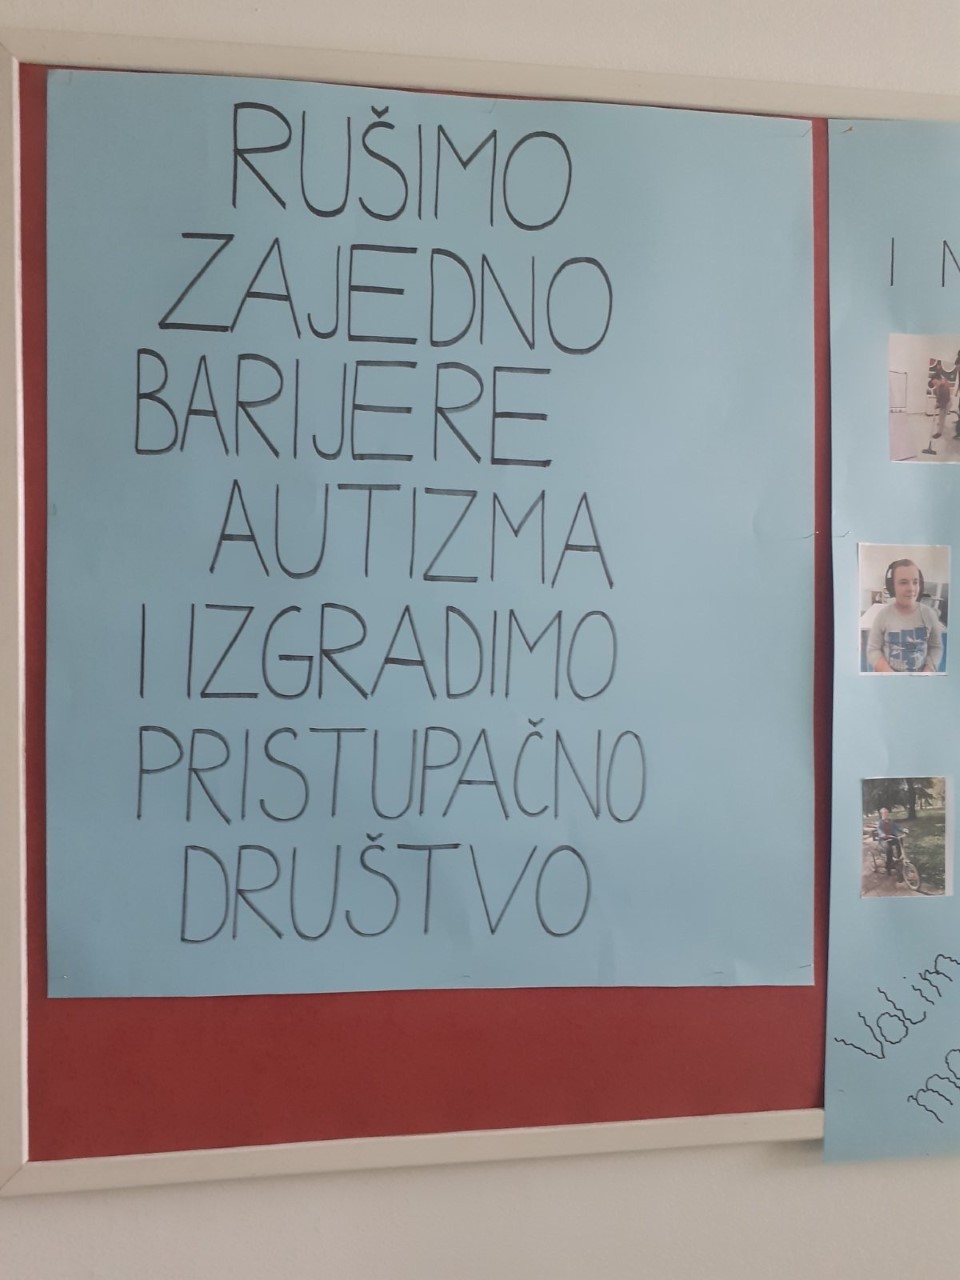 RUŠIMO
ZAJEDNO
BARIJERE
AUTIZMA
I IZGRADIMO
PRISTUPAČNO
DRUŠTVO
I
Volim